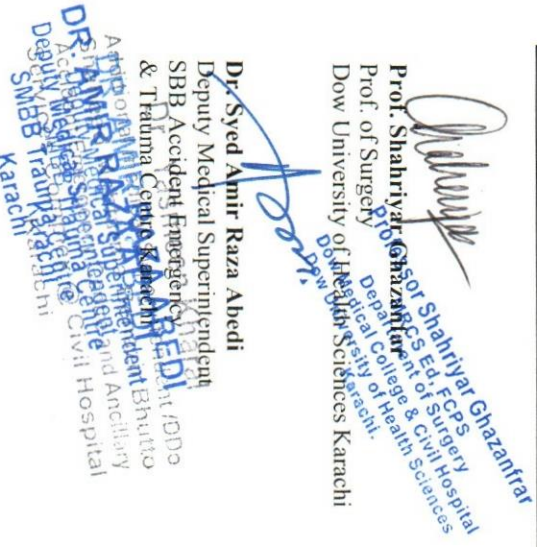 Prof. Shahriyar Ghazanfar
Prof. of Surgery
Dow University of Health Sciences Karachi
Professor Shahriyar Ghazanfrar
FRCS Ed, FCPS
Department of Surgery
Dow Medical College & Civil Hospital
Dow University of Health Sciences
Karachi.
Dr. Syed Amir Raza Abedi
Deputy Medical Superintendent
SBB Accident Emergency
& Trauma Centre Karachi
DR. AMIR RAZA ABEDI
Deputy Medical Superintendent
SMBB Trauma Centre
Karachi
Bhutto
and Ancillary
Civil Hospital
Karachi